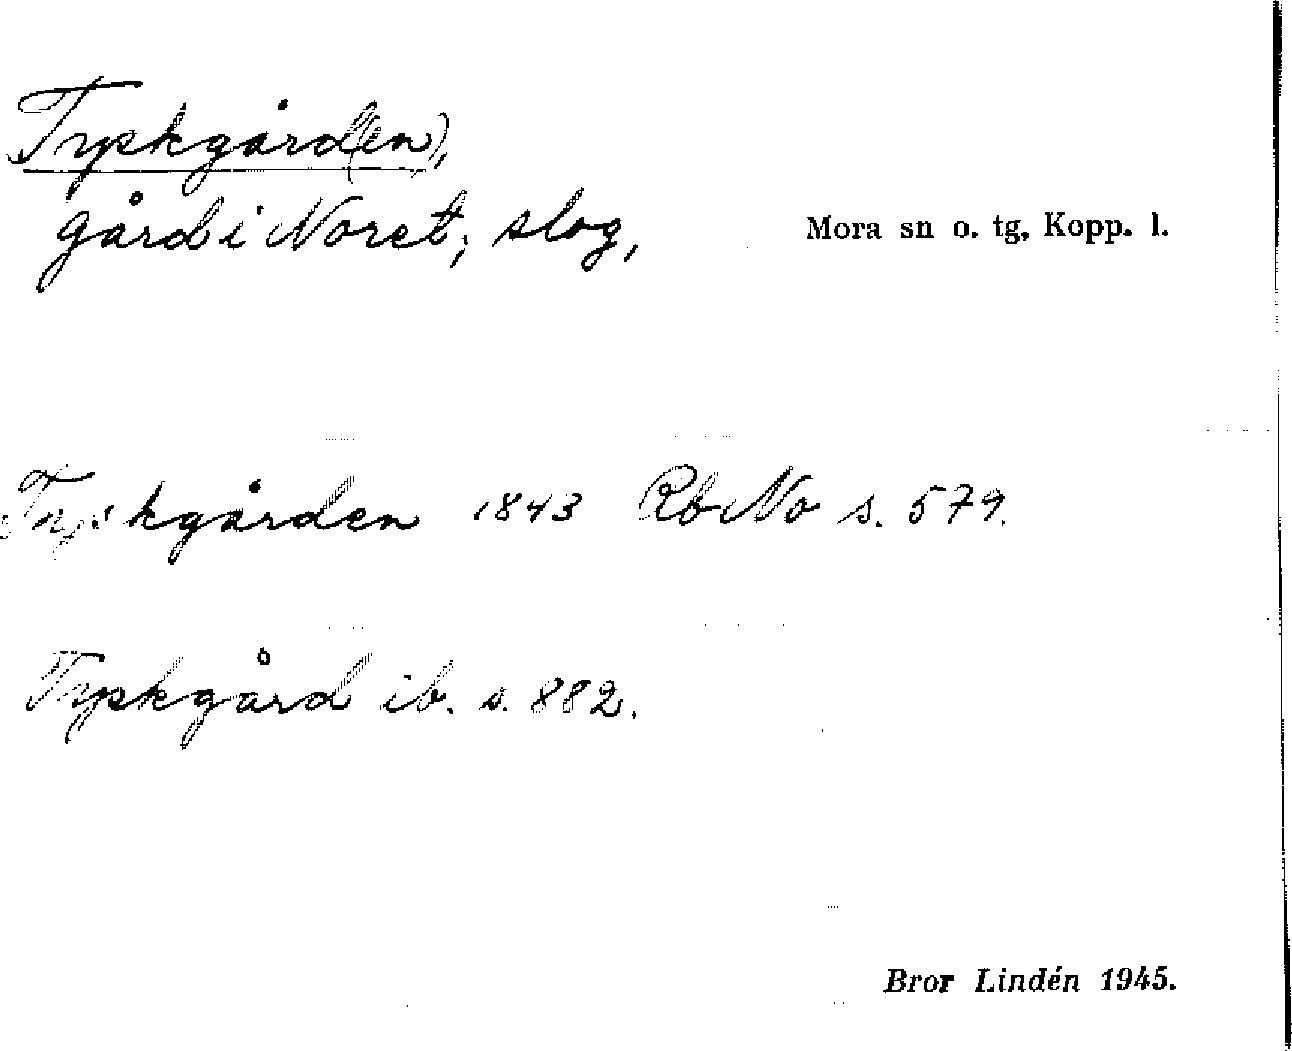 Tyskgård(en),
gård i Noret; slog, Mora sn o. tg, Kopp. l.
Tyskgården 1843 Rb No s. 579.
Tyskgård ib. s. 882.
Bror Lindén 1945.